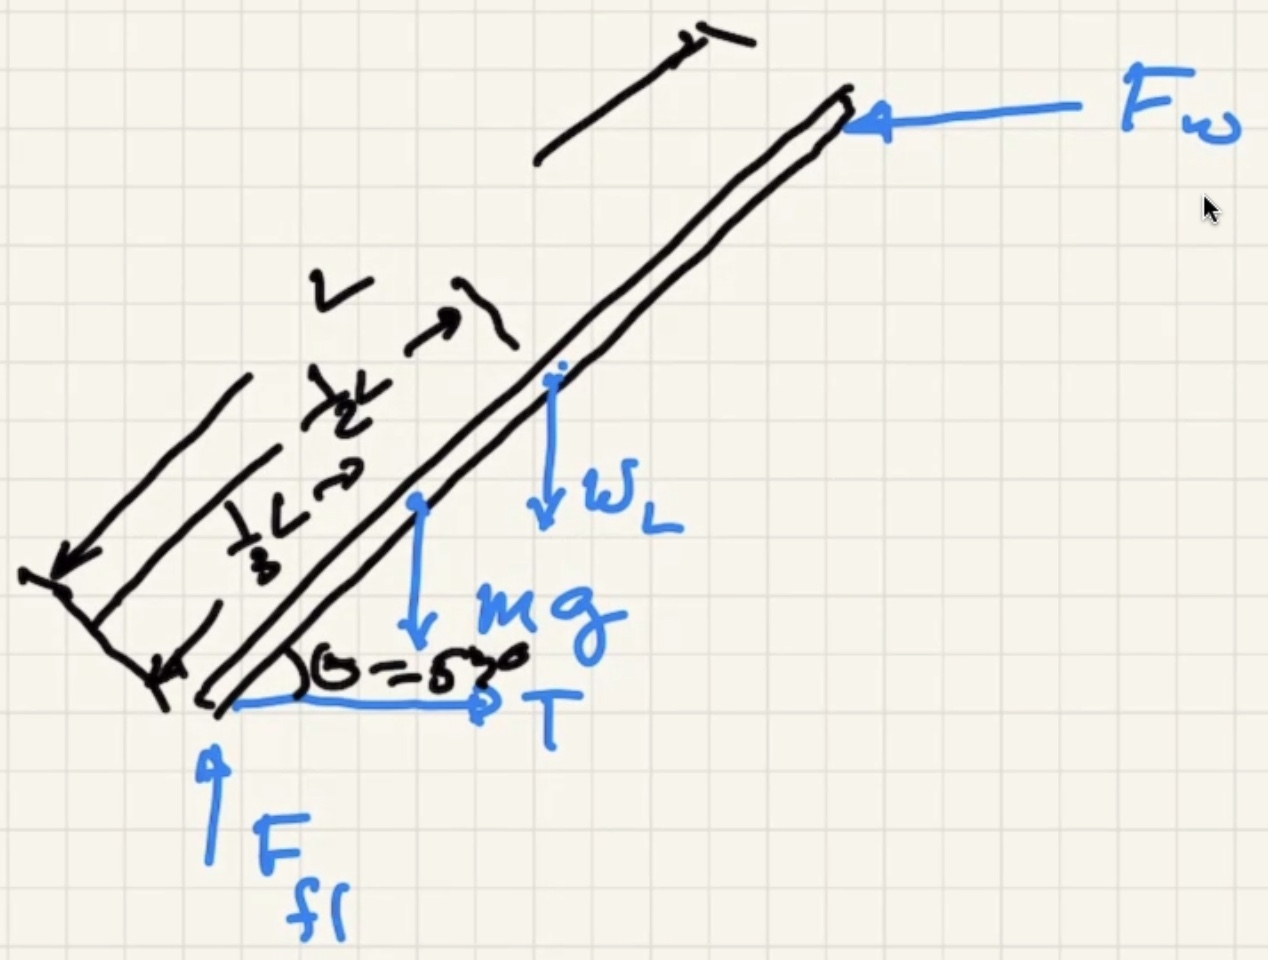 F_w
L
1/2 L
1/3 L
W_L
mg
T
F_fl